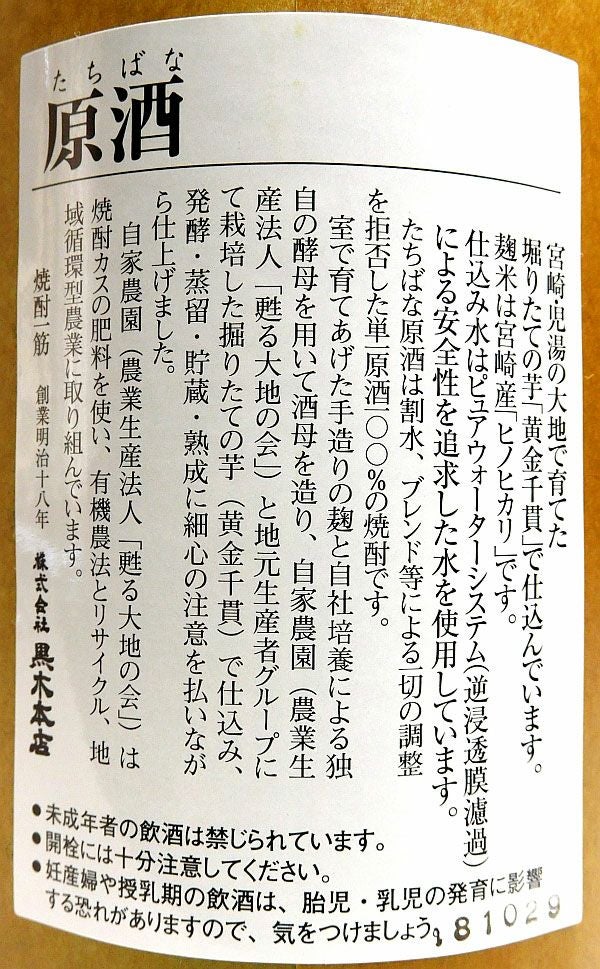 たちばな
原酒
宮崎・児湯の大地で育てた
掘りたての芋「黄金千貫」で仕込んでいます。
麹米は宮崎産「ヒノヒカリ」です。
仕込み水はピュアウォーターシステム(逆浸透膜濾過)
による安全性を追求した水を使用しています。
たちばな原酒は割水、ブレンド等による一切の調整
を拒否した単一原酒一〇〇%の焼酎です。
室で育てあげた手造りの麹と自社培養による独
自の酵母を用いて酒母を造り、自家農園(農業生
産法人「甦る大地の会」)と地元生産者グループに
て栽培した掘りたての芋(黄金千貫)で仕込み、
発酵・蒸留・貯蔵・熟成に細心の注意を払いなが
ら仕上げました。
自家農園(農業生産法人「甦る大地の会」)は
焼酎カスの肥料を使い、有機農法とリサイクル、地
域循環型農業に取り組んでいます。
焼酎一筋 創業明治十八年 株式会社 黒木本店
●未成年者の飲酒は禁じられています。
●開栓には十分注意してください。
●妊産婦や授乳期の飲酒は、胎児・乳児の発育に影響
する恐れがありますので、気をつけましょう。
181029